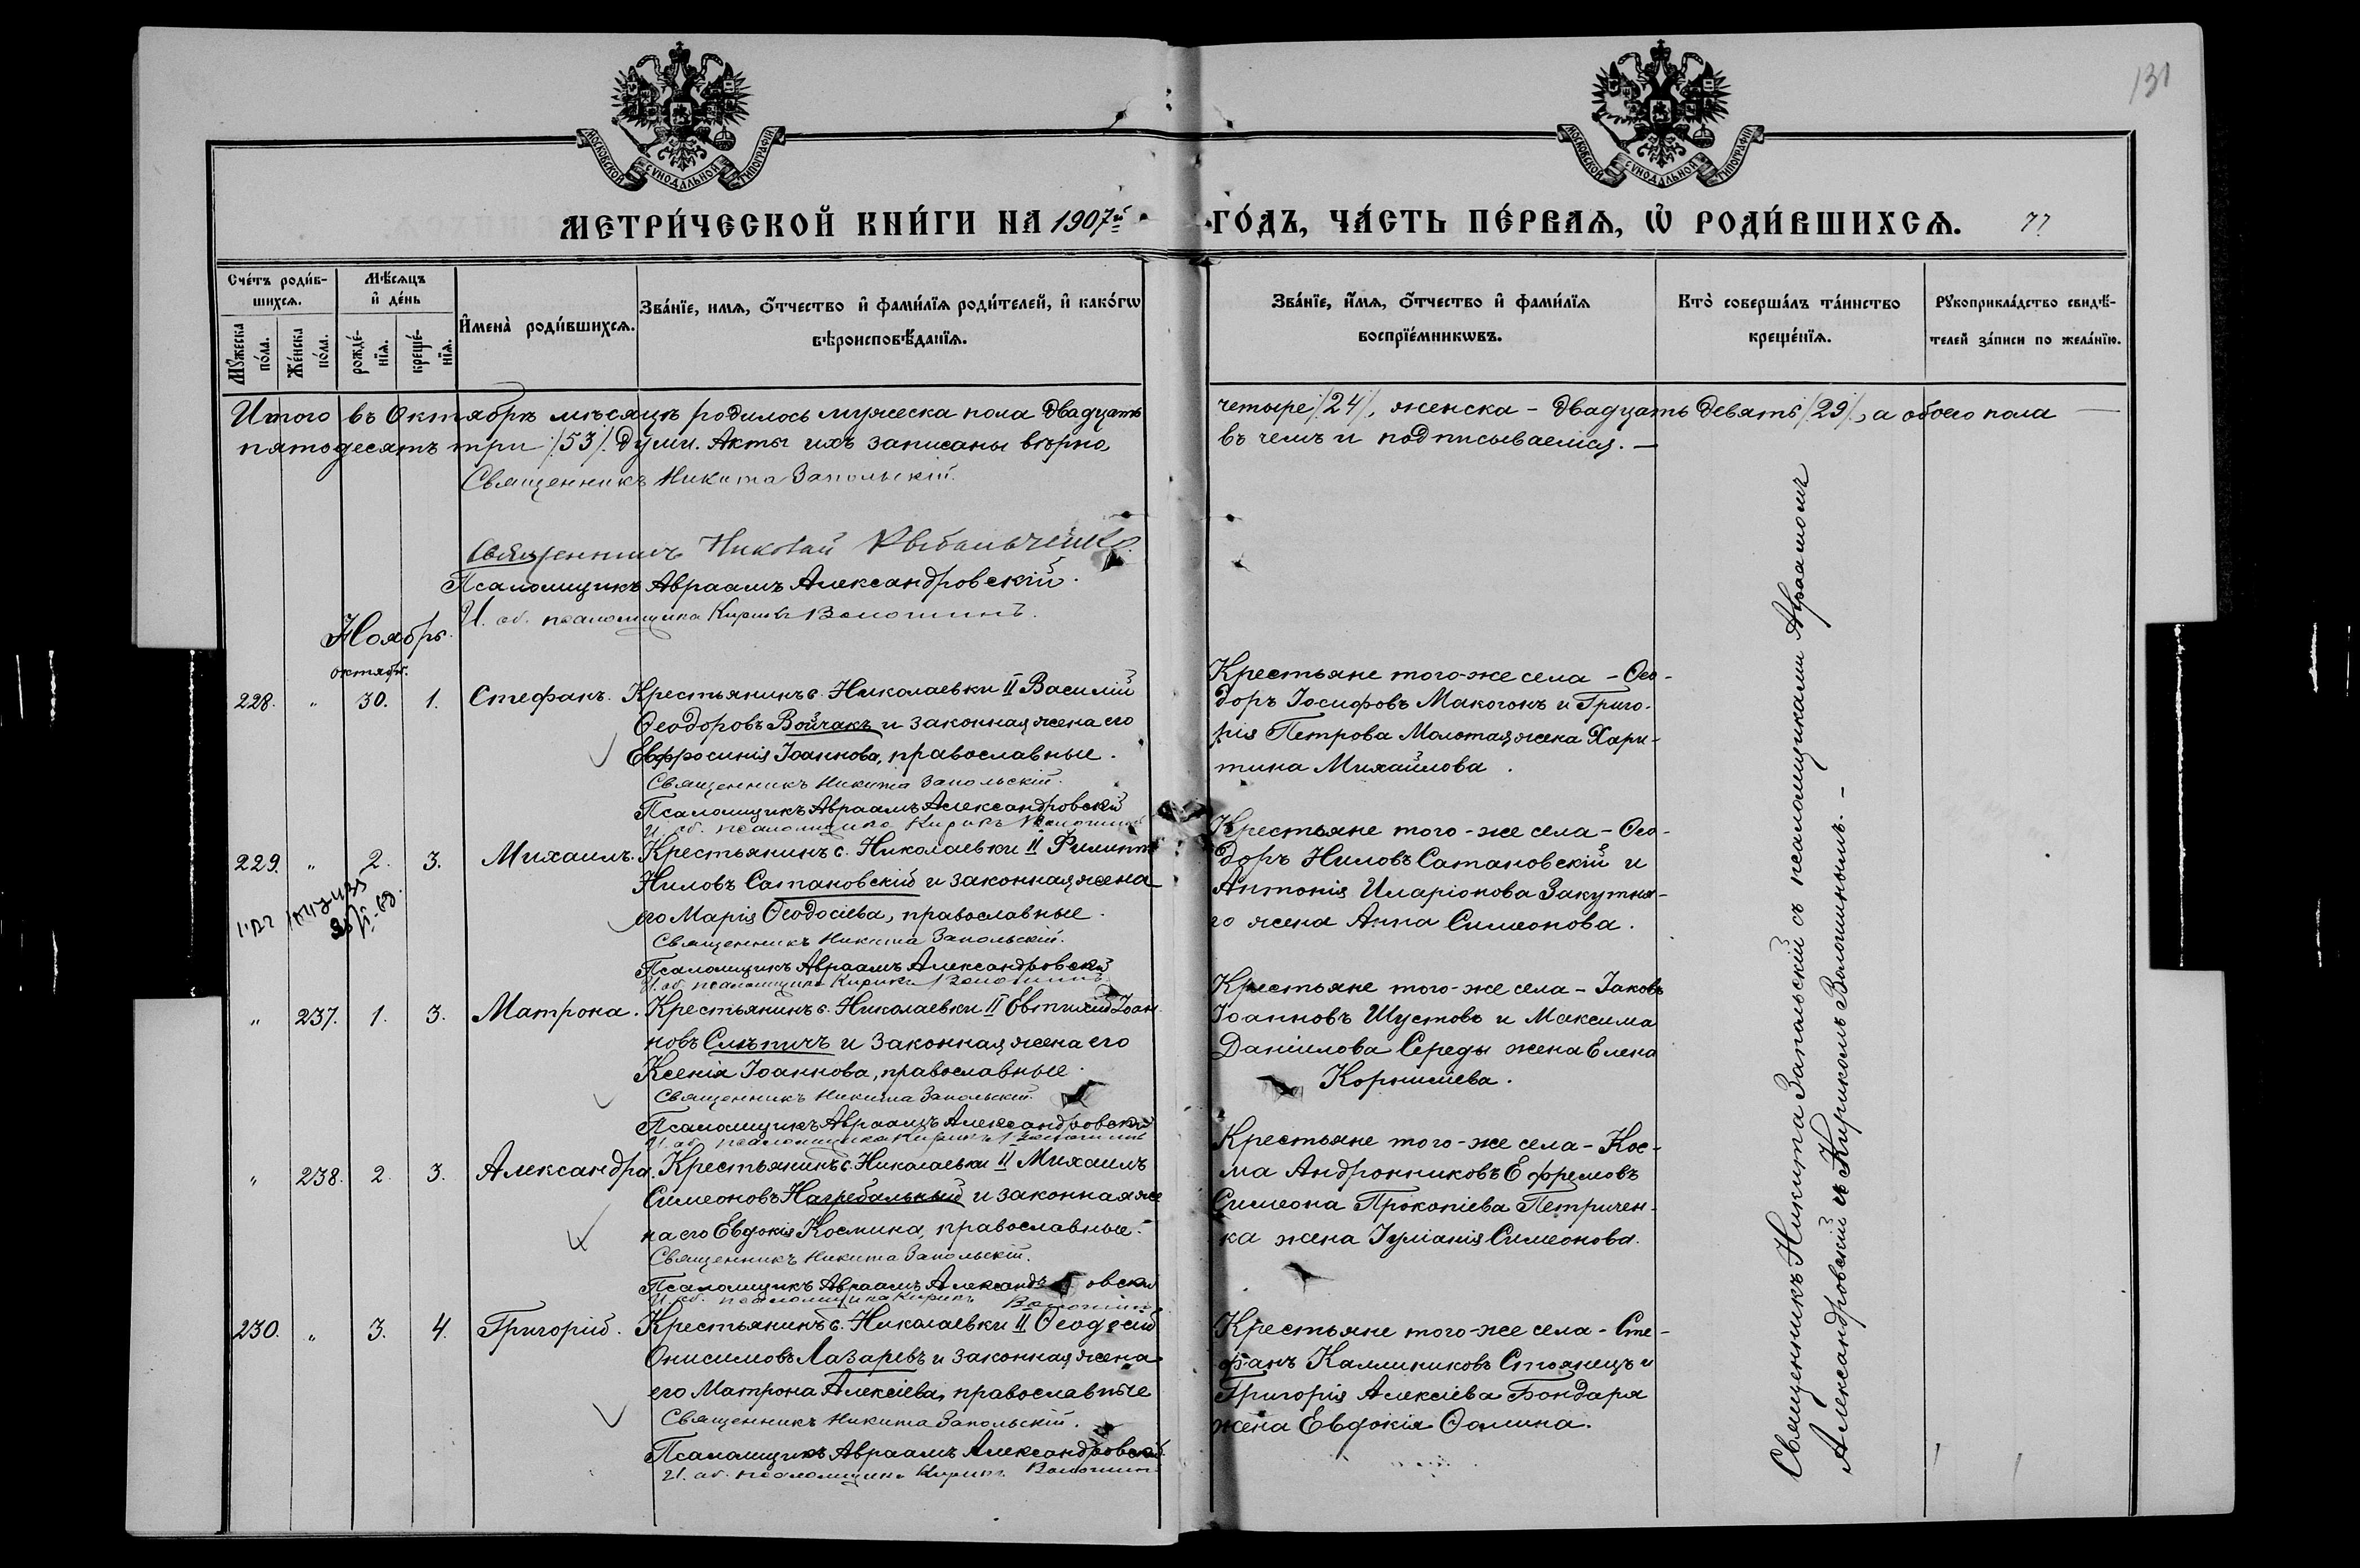 МОСКОВСКОЙ СѴНОДАЛЬНОЙ ТИПОГРАФІИ
МОСКОВСКОЙ СѴНОДАЛЬНОЙ ТИПОГРАФІИ
131
МЕТРИ́ЧЕСКОЙ КНИ́ГИ НА 1907й
ГО́ДЪ, ЧА́СТЬ ПЕ́РВАѦ, Ѡ҆ РОДИ́ВШИХСѦ. 77
Сче́тъ роди́в-
шихсѧ.
Мꙋ́жеска по́ла.
Же́нска по́ла.
Мѣ́сѧцъ
и҆ де́нь
рожде́-нїѧ.
креще́-нїѧ.
И҆мена̀ роди́вшихсѧ.
Зва́нїе, имѧ, ѻ҆́тчество и҆ фами́лїѧ роди́телей, и҆ како́гѡ
вѣроисповѣ́данїѧ.
Зва́нїе, и҆́мѧ, ѻ҆́тчество и҆ фами́лїѧ
воспрїе́мникѡвъ.
Кто̀ соверша́лъ та́инство
креще́нїѧ.
Рꙋкоприкла́дство свидѣ́-
телей за́писи по жела́нїю.
Итого въ Октябрѣ мѣсяцѣ родилось мужеска пола двадцать
четыре /24/, женска - двадцать девять /29/, а обоего пола
пятьдесятъ три /53/ души. Акты ихъ записаны вѣрно,
въ чемъ и подписываемся. —
Священникъ Никита Запольскій.
Священникъ Николай Рыбальченко.
Псаломщикъ Авраамъ Александровскій.
И. об. псаломщика Кирикъ Волошинъ.
Ноябрь.
октябр.
228. " 30. 1. Стефанъ. Крестьянинъ с. Николаевки II Василій
Ѳеодоровъ Войчакъ и законная жена его
Евфросинія Іоаннова, православные.
Священникъ Никита Запольскій.
Псаломщикъ Авраамъ Александровскій
И. об. псаломщика Кирикъ Волошинъ
Крестьяне того-же села - Ѳео-
доръ Іосифовъ Макогонъ и Григо-
рія Петрова Молотая жена Хари-
тина Михайлова.
229. " 2. 3. Михаилъ. Крестьянинъ с. Николаевки II Филиппъ
Ниловъ Сатановскій и законная жена
его Марія Ѳеодосіева, православные.
Священникъ Никита Запольскій.
Псаломщикъ Авраамъ Александровскій
И. об. псаломщика Кирикъ Волошинъ
Крестьяне того-же села - Ѳео-
доръ Ниловъ Сатановскій и
Антонія Иларіонова Закутня-
го жена Анна Симеонова.
" 237. 1. 3. Матрона. Крестьянинъ с. Николаевки II Евтихій Іоан-
новъ Слѣпичъ и законная жена его
Ксенія Іоаннова, православные.
Священникъ Никита Запольскій.
Псаломщикъ Авраамъ Александровскій
И. об. псаломщика Кирикъ Волошинъ
Крестьяне того-же села - Іаковъ
Іоанновъ Шустовъ и Максима
Даніилова Середы жена Елена
Корниліева.
" 238. 2. 3. Александра. Крестьянинъ с. Николаевки II Михаилъ
Симеоновъ Нагребальный и законная же
на его Евдокія Космина, православные.
Священникъ Никита Запольскій.
Псаломщикъ Авраамъ Александровскій
И. об. псаломщика Кирикъ Волошинъ
Крестьяне того-же села - Кос-
ма Андронниковъ Ефремовъ
Симеона Прокопіева Петричен-
ка жена Іуліанія Симеонова.
230. " 3. 4. Григорій. Крестьянинъ с. Николаевки II Ѳеодосій
Онисимовъ Лазаревъ и законная жена
его Матрона Алексіева, православные
Священникъ Никита Запольскій.
Псаломщикъ Авраамъ Александровскій.
И. об. псаломщика Кирикъ Волошинъ
Крестьяне того-же села - Сте-
фанъ Каллиниковъ Стоянецъ и
Григорія Алексіева Бондаря
жена Евдокія Ѳомина.
Священникъ Никита Запольскій съ псаломщиками Авраамомъ
Александровскій и Кирикомъ Волошинымъ. -